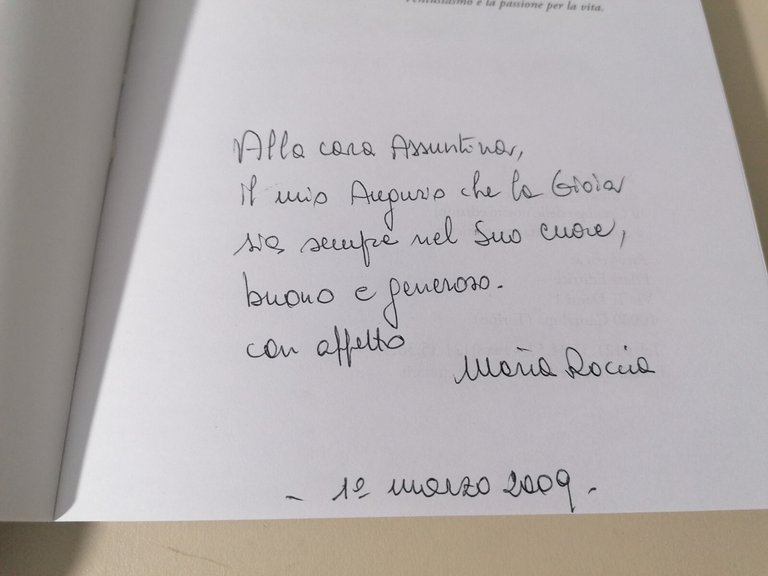 l'entusiasmo e la passione per la vita.
Alla cara Assuntina,
il mio Augurio che la Gioia
sia sempre nel Suo cuore,
buono e generoso.
con affetto
Maria Roccia
- 1º marzo 2009.